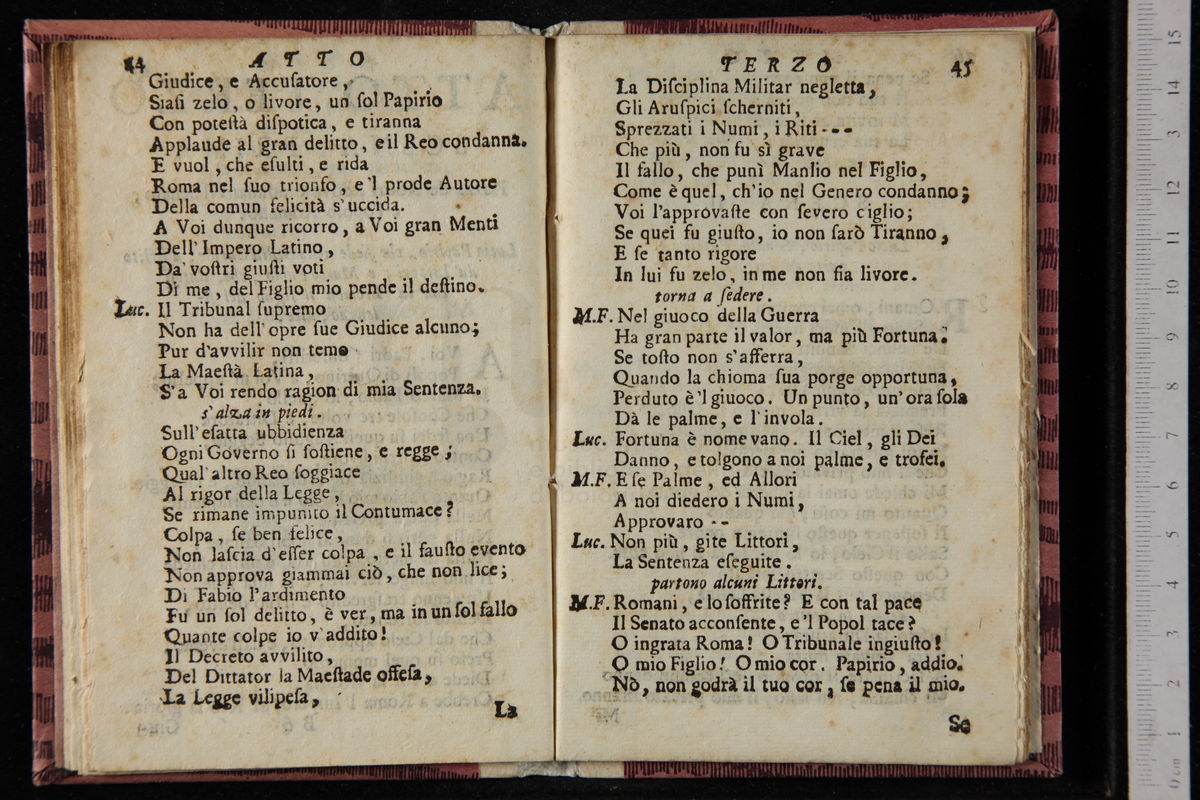 44 ATTO
Giudice, e Accuſatore,
Siaſi zelo, o livore, un ſol Papirio
Con poteſtà diſpotica, e tiranna
Applaude al gran delitto, e il Reo condanna.
E vuol, che eſulti, e rida
Roma nel ſuo trionfo, e 'l prode Autore
Della comun felicità s'uccida.
A Voi dunque ricorro, a Voi gran Menti
Dell' Impero Latino,
Da' voſtri giuſti voti
Di me, del Figlio mio pende il deſtino.
Luc. Il Tribunal ſupremo
Non ha dell' opre ſue Giudice alcuno;
Pur d'avvilir non temo
La Maeſtà Latina,
S'a Voi rendo ragion di mia Sentenza.
s'alza in piedi.
Sull'eſatta ubbidienza
Ogni Governo ſi ſoſtiene, e regge;
Qual' altro Reo ſoggiace
Al rigor della Legge,
Se rimane impunito il Contumace?
Colpa, ſe ben felice,
Non laſcia d'eſſer colpa, e il fauſto evento
Non approva giammai ciò, che non lice;
Di Fabio l'ardimento
Fu un ſol delitto, è ver, ma in un ſol fallo
Quante colpe io v'addito!
Il Decreto avvilito,
Del Dittator la Maeſtade offeſa,
La Legge vilipeſa,
La
TERZO 45
La Diſciplina Militar negletta,
Gli Aruſpici ſcherniti,
Sprezzati i Numi, i Riti ---
Che più, non fu sì grave
Il fallo, che punì Manlio nel Figlio,
Come è quel, ch'io nel Genero condanno;
Voi l'approvaſte con ſevero ciglio;
Se quei fu giuſto, io non ſarò Tiranno,
E ſe tanto rigore
In lui fu zelo, in me non fia livore.
torna a ſedere.
M.F. Nel giuoco della Guerra
Ha gran parte il valor, ma più Fortuna.
Se toſto non s'afferra,
Quando la chioma ſua porge opportuna,
Perduto è 'l giuoco. Un punto, un' ora ſola
Dà le palme, e l'invola.
Luc. Fortuna è nome vano. Il Ciel, gli Dei
Danno, e tolgono a noi palme, e trofei.
M.F. E ſe Palme, ed Allori
A noi diedero i Numi,
Approvaro --
Luc. Non più, gite Littori,
La Sentenza eſeguite.
partono alcuni Littori.
M.F. Romani, e lo ſoffrite? E con tal pace
Il Senato acconſente, e 'l Popol tace?
O ingrata Roma! O Tribunale ingiuſto!
O mio Figlio! O mio cor. Papirio, addio.
Nò, non godrà il tuo cor, ſe pena il mio.
Se
0 cm 1 2 3 4 5 6 7 8 9 10 11 12 13 14 15